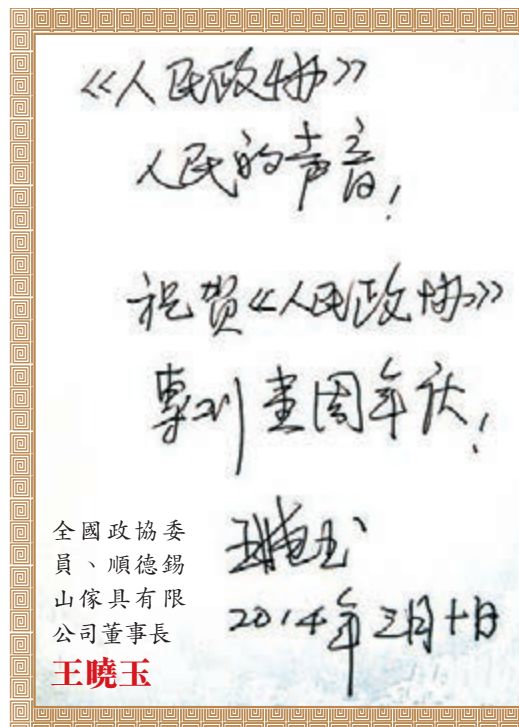 《人民政协》
人民的声音！
祝贺《人民政协》
專刊壹周年庆！
王晓玉
2014年三月十日
全國政協委
員、順德錫
山傢具有限
公司董事長
王曉玉